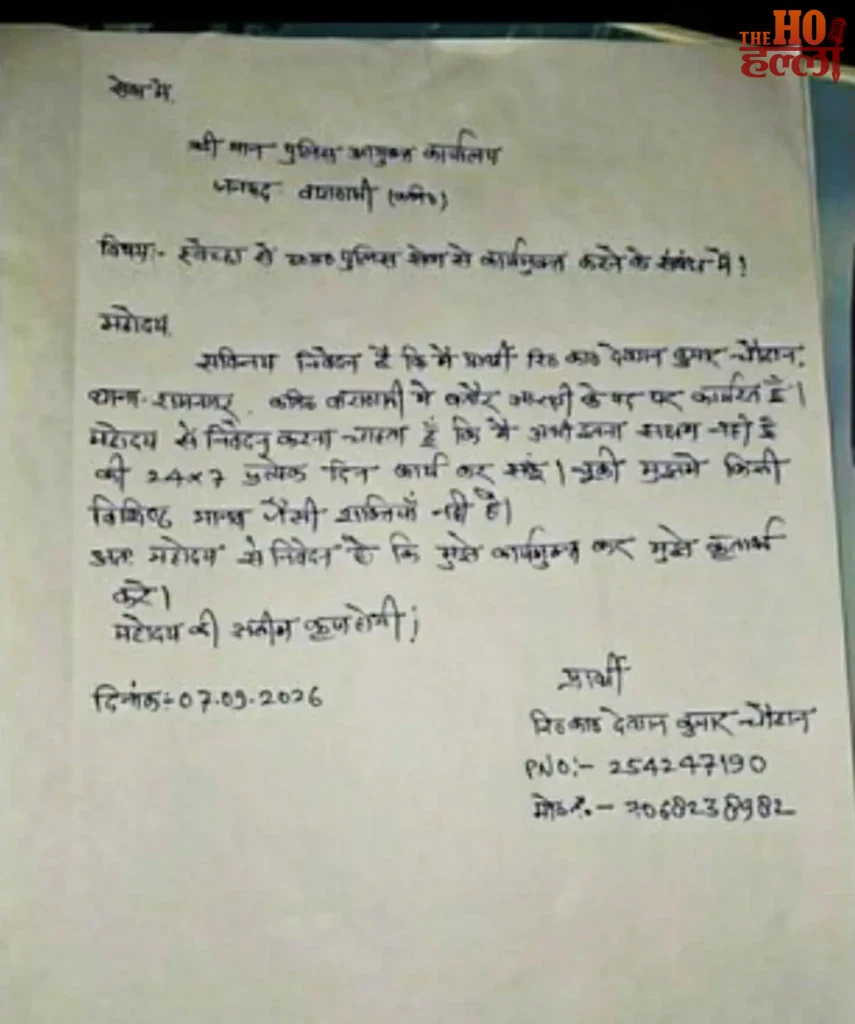 THE HO
हल्ला
सेवा में,
श्री मान पुलिस आयुक्त कार्यालय
जनपद वाराणसी (कमि०)
विषय:- स्वेच्छा से उ०प्र० पुलिस सेवा से कार्यमुक्त करने के संबंध में!
महोदय,
सविनय निवेदन है कि मैं प्रार्थी रि० का० देवान कुमार चौहान,
थाना-रामनगर, कमि० वाराणसी में बतौर आरक्षी के पद पर कार्यरत है।
महोदय से निवेदन करना चाहता हूँ कि मैं अभी इतना सक्षम नहीं है
की 24x7 प्रत्येक दिन कार्य कर सकूं। चुकी मुझमे किसी
विशिष्ट मानव जैसी शक्तियाँ नहीं है।
अतः महोदय से निवेदन है कि मुझे कार्यमुक्त कर मुझे कृतार्थ
करे।
महोदय की असीम कृपा होगी;
प्रार्थी
दिनांक:-07.09.2026
रि० का० देवान कुमार चौहान
PNO:- 254247190
मो०नं.- 7068238982